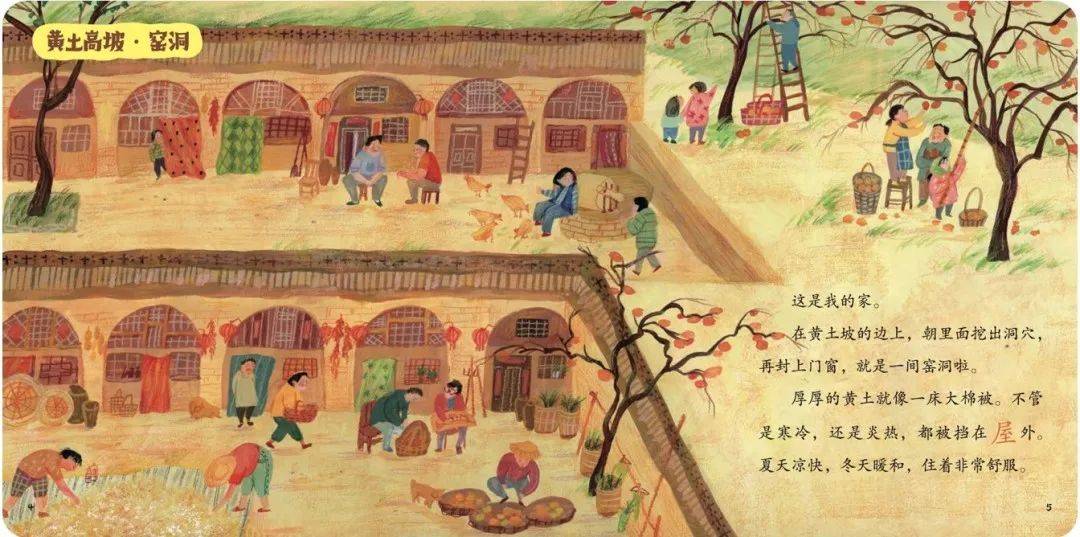 黄土高坡·窑洞
这是我的家。
在黄土坡的边上，朝里面挖出洞穴，
再封上门窗，就是一间窑洞啦。
厚厚的黄土就像一床大棉被。不管
是寒冷，还是炎热，都被挡在屋外。
夏天凉快，冬天暖和，住着非常舒服。
4
5